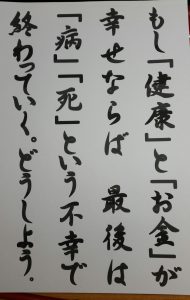 もし「健康」と「お金」が
幸せならば 最後は
「病」「死」という不幸で
終わっていく。どうしよう。